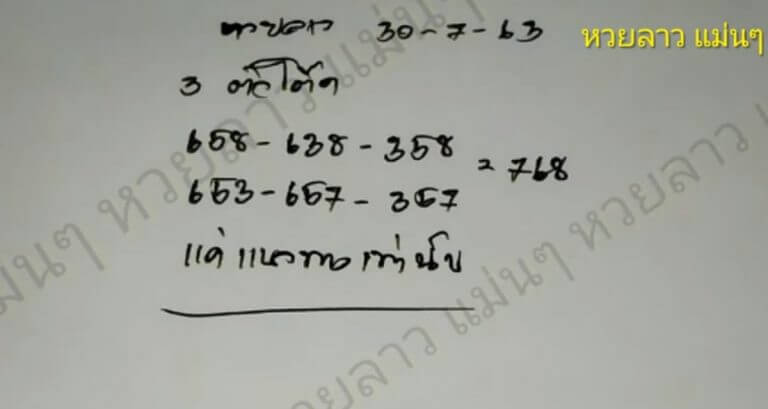 หวยลาว 30-7-63
หวยลาว แม่นๆ
3 ตัวโต๊ด
658-638-358
653-657-357
= 768
แค่แนวทางเท่านั้น
หวยลาว แม่นๆ
หวยลาว แม่นๆ